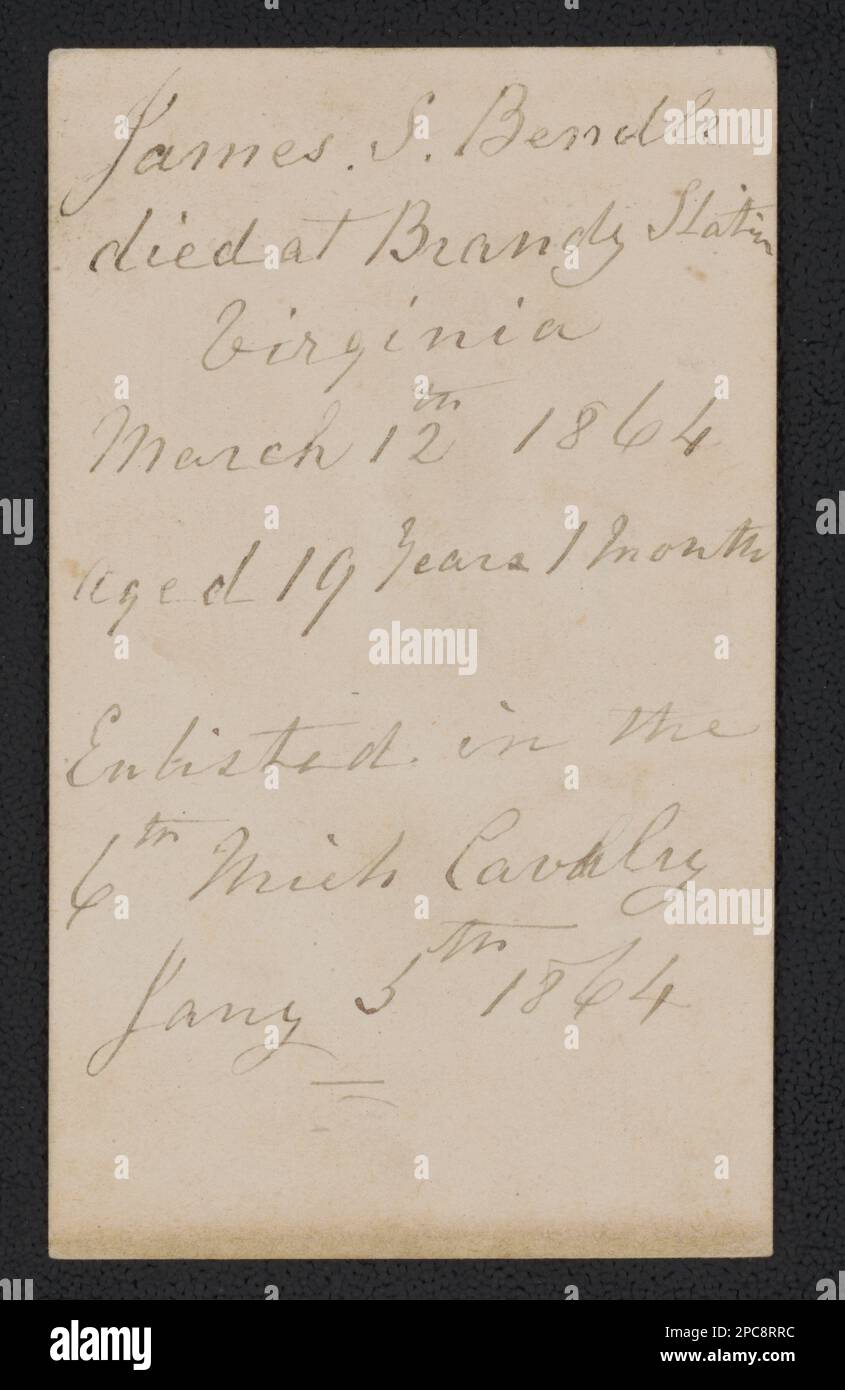 James. S. Bendle
died at Brandy Station
Virginia
March 12th 1864
Aged 19 Years 1 Month
Enlisted in the
6th Mich Cavalry
Jany 5th 1864
alamy
alamy
alamy
a
Image ID: 2PC8RRC
www.alamy.com